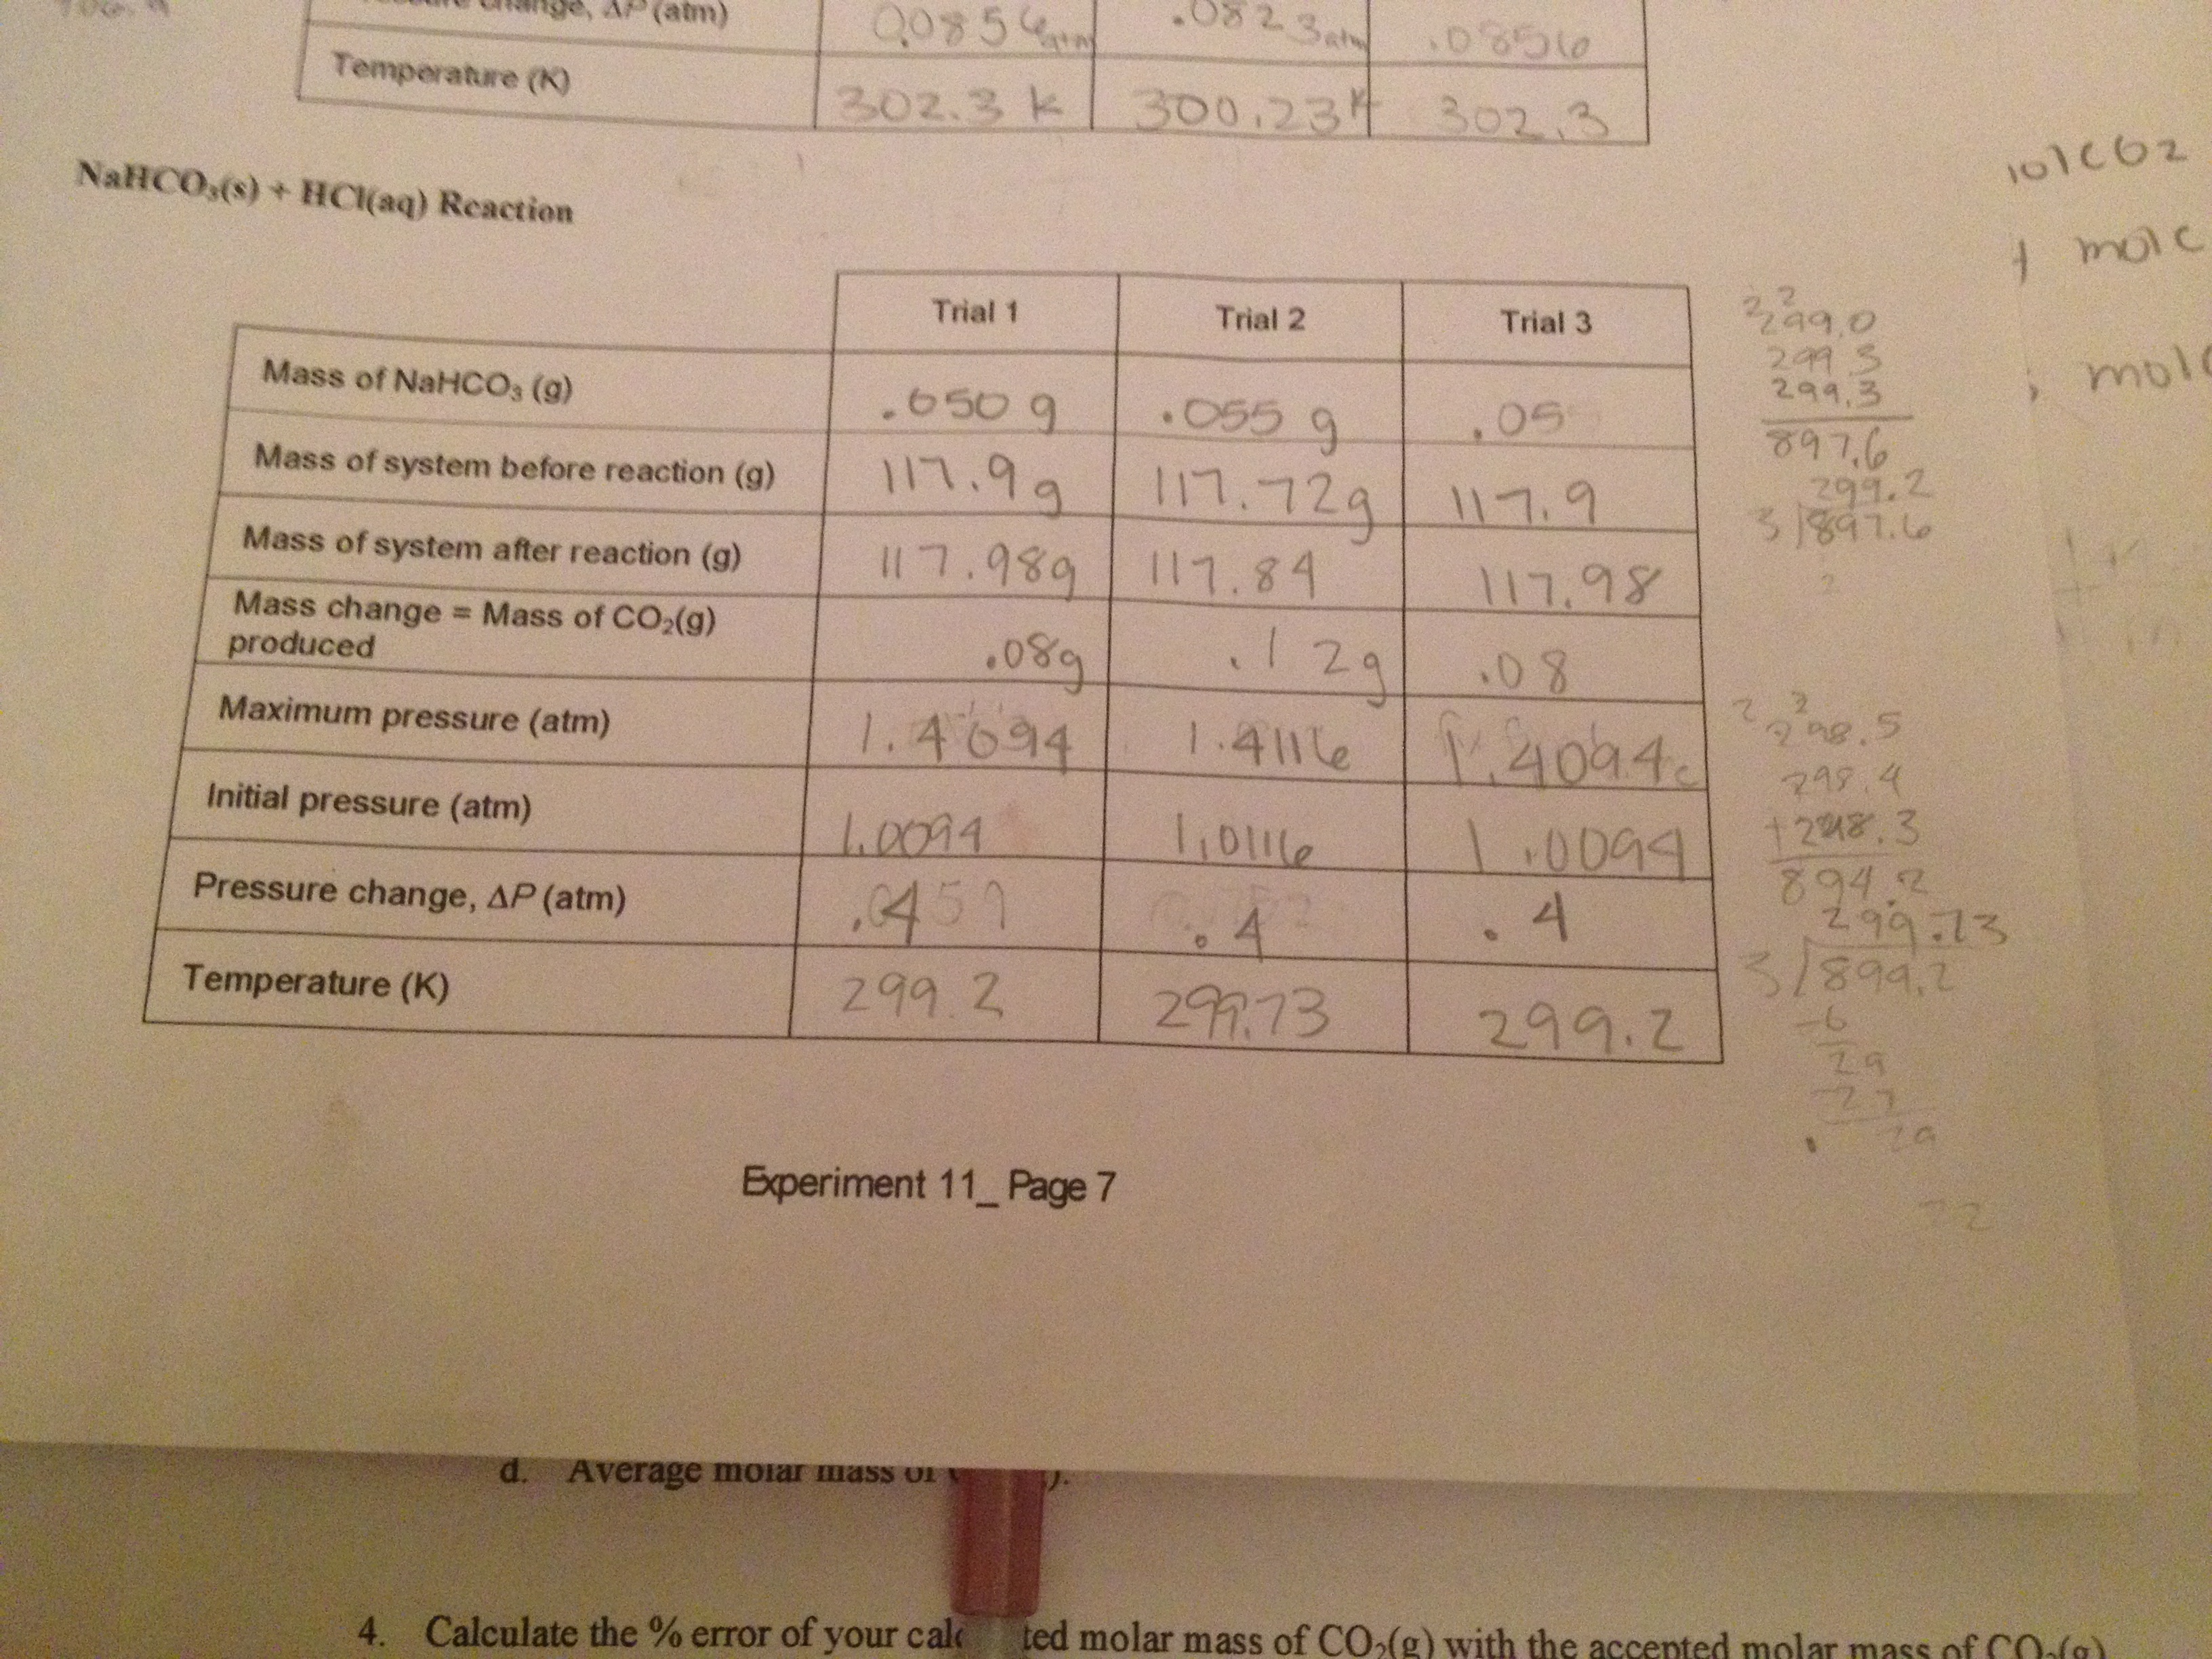 change, ΔP (atm) 0.0856atm .0823atm .0856
Temperature (K) 302.3 K 300.23K 302.3
NaHCO₃(s) + HCl(aq) Reaction
Trial 1 Trial 2 Trial 3
Mass of NaHCO₃ (g) .050 g .055 g .05
Mass of system before reaction (g) 117.9g 117.72g 117.9
Mass of system after reaction (g) 117.98g 117.84 117.98
Mass change = Mass of CO₂(g)
produced .08g .12g .08
Maximum pressure (atm) 1.4094 1.4116 1.4094
Initial pressure (atm) 1.0094 1.0116 1.0094
Pressure change, ΔP (atm) .4 .4 .4
Temperature (K) 299.2 299.73 299.2
molc
299.0
299.3
299.3
897.6
299.2
3 897.6
298.5
298.4
894.2
299.73
3 899.2
-6
29
27
Experiment 11_ Page 7
d. Average molar mass of
4. Calculate the % error of your molar mass of CO₂(g) with the accepted molar mass of CO₂(g)